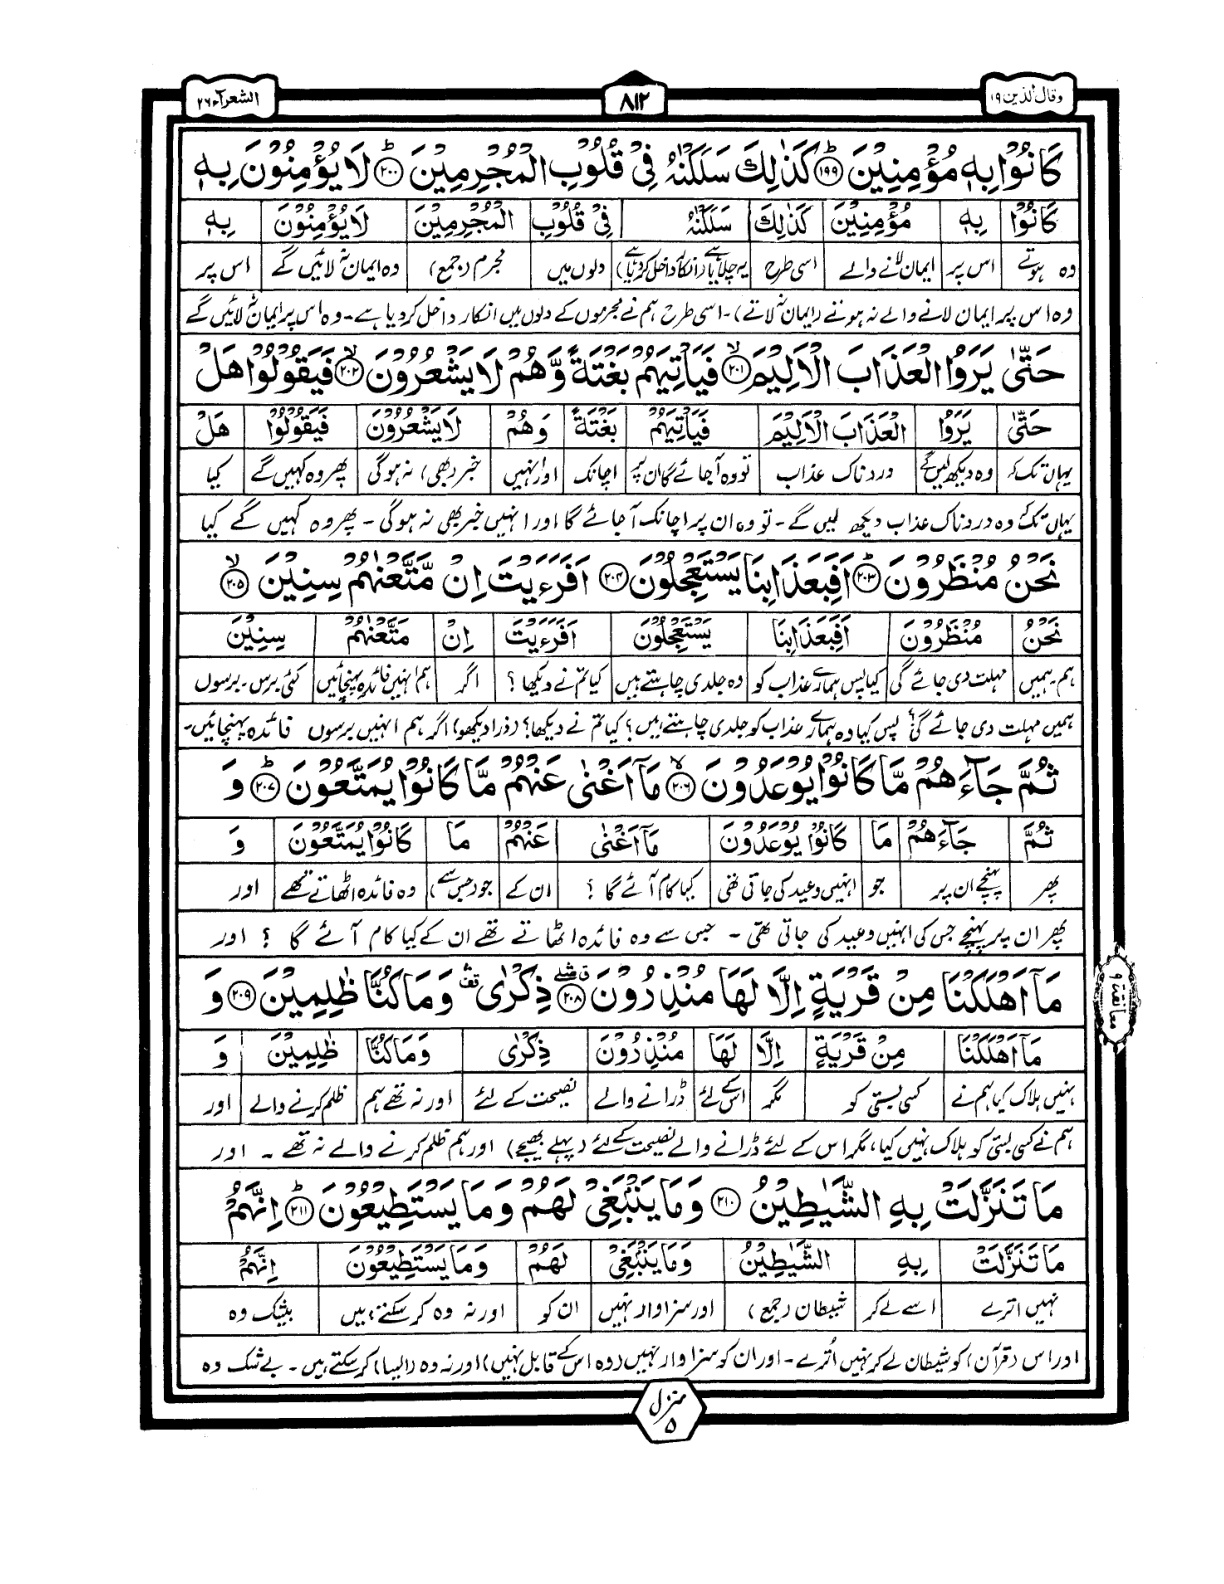 وقال الذين ١٩
٨١٢
الشعرآء ٢٦
كَانُوْا بِهٖ مُؤْمِنِيْنَ ﴿١٩٩﴾ كَذٰلِكَ سَلَكْنٰهُ فِيْ قُلُوْبِ الْمُجْرِمِيْنَ ﴿٢٠٠﴾ لَا يُؤْمِنُوْنَ بِهٖ
كَانُوْا بِهٖ مُؤْمِنِيْنَ كَذٰلِكَ سَلَكْنٰهُ فِيْ قُلُوْبِ الْمُجْرِمِيْنَ لَا يُؤْمِنُوْنَ بِهٖ
وہ ہوتے اس پر ایمان لانے والے اسی طرح یہ چلایا ہے (انکار داخل کردیا ہے) دلوں میں مجرم (جمع) وہ ایمان نہ لائیں گے اس پر
وہ اس پر ایمان لانے والے نہ ہوتے (ایمان نہ لاتے)۔ اسی طرح ہم نے مجرموں کے دلوں میں انکار داخل کردیا ہے۔ وہ اس پر ایمان نہ لائیں گے
حَتّٰى يَرَوُا الْعَذَابَ الْاَلِيْمَ ﴿٢٠١﴾ فَيَاْتِيَهُمْ بَغْتَةً وَّهُمْ لَا يَشْعُرُوْنَ ﴿٢٠٢﴾ فَيَقُوْلُوْا هَلْ
حَتّٰى يَرَوُا الْعَذَابَ الْاَلِيْمَ فَيَاْتِيَهُمْ بَغْتَةً وَهُمْ لَا يَشْعُرُوْنَ فَيَقُوْلُوْا هَلْ
یہاں تک کہ وہ دیکھ لیں گے دردناک عذاب تو وہ آجائے گا ان پر اچانک اور انہیں خبر (بھی) نہ ہوگی پھر وہ کہیں گے کیا
یہاں تک کہ وہ دردناک عذاب دیکھ لیں گے۔ تو وہ ان پر اچانک آجائے گا اور انہیں خبر بھی نہ ہوگی۔ پھر وہ کہیں گے کیا
نَحْنُ مُنْظَرُوْنَ ﴿٢٠٣﴾ اَفَبِعَذَابِنَا يَسْتَعْجِلُوْنَ ﴿٢٠٤﴾ اَفَرَءَيْتَ اِنْ مَّتَّعْنٰهُمْ سِنِيْنَ ﴿٢٠٥﴾
نَحْنُ مُنْظَرُوْنَ اَفَبِعَذَابِنَا يَسْتَعْجِلُوْنَ اَفَرَءَيْتَ اِنْ مَتَّعْنٰهُمْ سِنِيْنَ
ہم۔ ہمیں مہلت دی جائے گی کیا پس ہمارے عذاب کو وہ جلدی چاہتے ہیں کیا تم نے دیکھا؟ اگر ہم انہیں فائدہ پہنچائیں کئی برس۔ برسوں
ہمیں مہلت دی جائے گی؟ پس کیا وہ ہمارے عذاب کو جلدی چاہتے ہیں؟ کیا تم نے دیکھا؟ (ذرا دیکھو) اگر ہم انہیں برسوں فائدہ پہنچائیں۔
ثُمَّ جَآءَهُمْ مَّا كَانُوْا يُوْعَدُوْنَ ﴿٢٠٦﴾ مَآ اَغْنٰى عَنْهُمْ مَّا كَانُوْا يُمَتَّعُوْنَ ﴿٢٠٧﴾ وَ
ثُمَّ جَآءَهُمْ مَا كَانُوْا يُوْعَدُوْنَ مَآ اَغْنٰى عَنْهُمْ مَا كَانُوْا يُمَتَّعُوْنَ وَ
پھر پہنچے ان پر جو انہیں وعید کی جاتی تھی کیا کام آئے گا؟ ان کے جو (جس سے) وہ فائدہ اٹھاتے تھے اور
پھر ان پر پہنچے جس کی انہیں وعید کی جاتی تھی۔ جس سے وہ فائدہ اٹھاتے تھے ان کے کیا کام آئے گا؟ اور
مَآ اَهْلَكْنَا مِنْ قَرْيَةٍ اِلَّا لَهَا مُنْذِرُوْنَ ﴿٢٠٨﴾ ذِكْرٰى وَمَا كُنَّا ظٰلِمِيْنَ ﴿٢٠٩﴾ وَ
معانقة ٩
مَآ اَهْلَكْنَا مِنْ قَرْيَةٍ اِلَّا لَهَا مُنْذِرُوْنَ ذِكْرٰى وَمَا كُنَّا ظٰلِمِيْنَ وَ
نہیں ہلاک کیا ہم نے کسی بستی کو مگر اس کے لئے ڈرانے والے نصیحت کے لئے اور نہ تھے ہم ظلم کرنے والے اور
ہم نے کسی بستی کو ہلاک نہیں کیا، مگر اس کے لئے ڈرانے والے نصیحت کے لئے (پہلے بھیجے) اور ہم ظلم کرنے والے نہ تھے۔ اور
مَا تَنَزَّلَتْ بِهِ الشَّيٰطِيْنُ ﴿٢١٠﴾ وَمَا يَنْۢبَغِيْ لَهُمْ وَمَا يَسْتَطِيْعُوْنَ ﴿٢١١﴾ اِنَّهُمْ
مَا تَنَزَّلَتْ بِهِ الشَّيٰطِيْنُ وَمَا يَنْۢبَغِيْ لَهُمْ وَمَا يَسْتَطِيْعُوْنَ اِنَّهُمْ
نہیں اترے اسے لے کر شیطان (جمع) اور سزاوار نہیں ان کو اور نہ وہ کرسکتے ہیں بیشک وہ
اور اس (قرآن) کو شیطان لے کر نہیں اُترے۔ اور ان کو سزاوار نہیں (وہ اس کے قابل نہیں) اور نہ وہ (ایسا) کرسکتے ہیں۔ بے شک وہ
منزل ۵